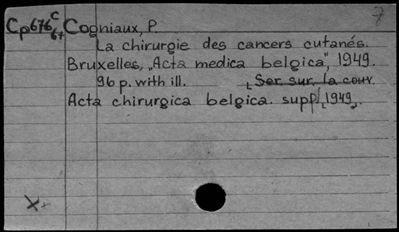 7
Cp676 C 6+ Cogniaux, P.
La chirurgie des cancers cutanés.
Bruxelles, „Acta medica belgica", 1949.
96 p. with ill. Ser. sur. la couv.
Acta chirurgica belgica. suppl. 1949.
X